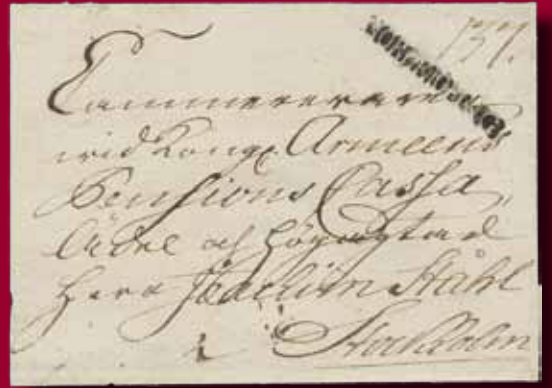 137.
Cammereraren
wid Kongl. Armeens
Pensions Cassa,
Ädel och Högagtad
Herr Joachim Ståhl
i
Stockholm